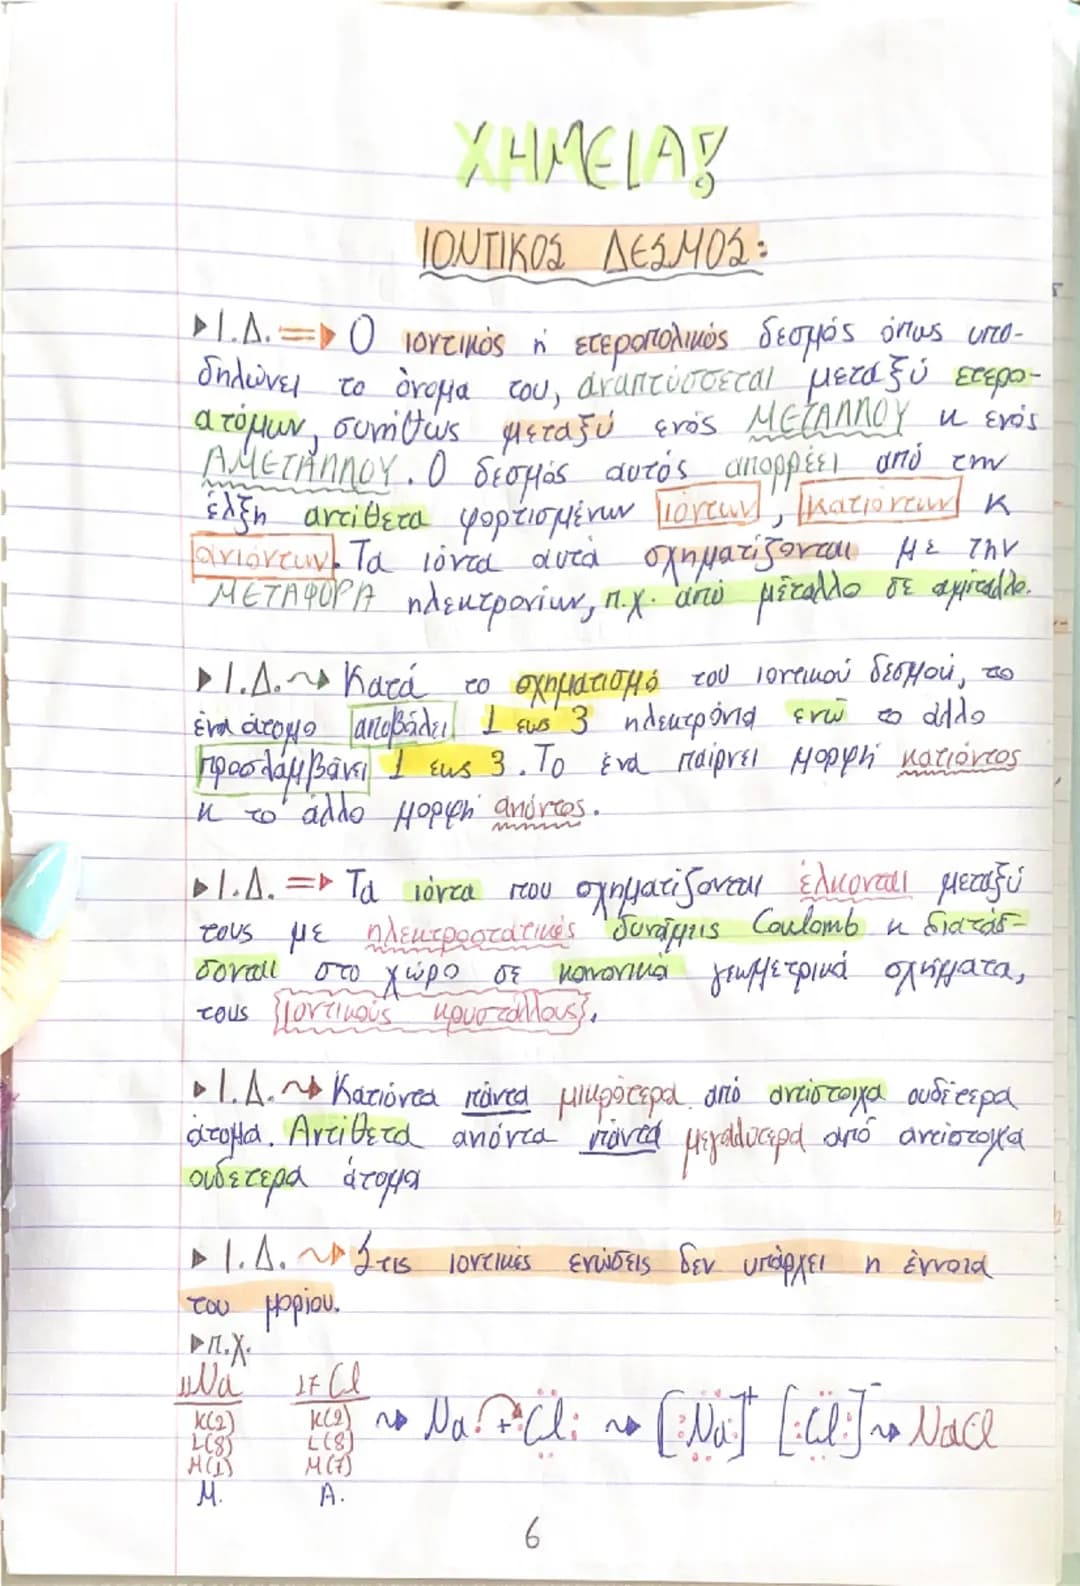 ΧΗΜΕΙΑ!
ΙΟΝΤΙΚΟΣ ΔΕΣΜΟΣ:
▶Ι.Δ. => Ο ιοντικός ή ετεροπολικός δεσμός όπως υπο-
δηλώνει το όνομα του, αναπτύσσεται μεταξύ ετερο-
ατόμων, συνήθως μεταξύ ενός ΜΕΤΑΛΛΟΥ κ ενός
ΑΜΕΤΑΛΛΟΥ. Ο δεσμός αυτός απορρέει από την
έλξη αντίθετα φορτισμένων ιόντων, κατιόντων κ
ανιόντων. Τα ιόντα αυτά σχηματίζονται με την
ΜΕΤΑΦΟΡΑ ηλεκτρονίων, π.χ. από μέταλλο σε αμέταλλο.
▶Ι.Δ. ~> Κατά το σχηματισμό του ιοντικού δεσμού, το
ένα άτομο αποβάλει 1 εως 3 ηλεκτρόνια ενώ το άλλο
προσλαμβάνει 1 εως 3. Το ένα παίρνει μορφή κατιόντος
κ το άλλο μορφή ανιόντος.
▶Ι.Δ. => Τα ιόντα που σχηματίζονται έλκονται μεταξύ
τους με ηλεκτροστατικές δυνάμεις Coulomb κ διατάσ-
σονται στο χώρο σε κανονικά γεωμετρικά σχήματα,
τους {ιοντικούς κρυστάλλους}.
▶Ι.Δ. ~> Κατιόντα πάντα μικρότερα από αντίστοιχα ουδέτερα
άτομα. Αντίθετα ανιόντα πάντα μεγαλλύτερα από αντίστοιχα
ουδετερα άτομα
▶Ι.Δ. ~> Στις ιοντικές ενώσεις δεν υπάρχει η έννοια
του μορίου.
▶π.χ.
11Na 17Cl
K(2) K(2) ~> Na· + :Cl: ~> [:Na:]+ [:Cl:]- ~> NaCl
L(8) L(8)
M(1) M(7)
Μ. Α.
6